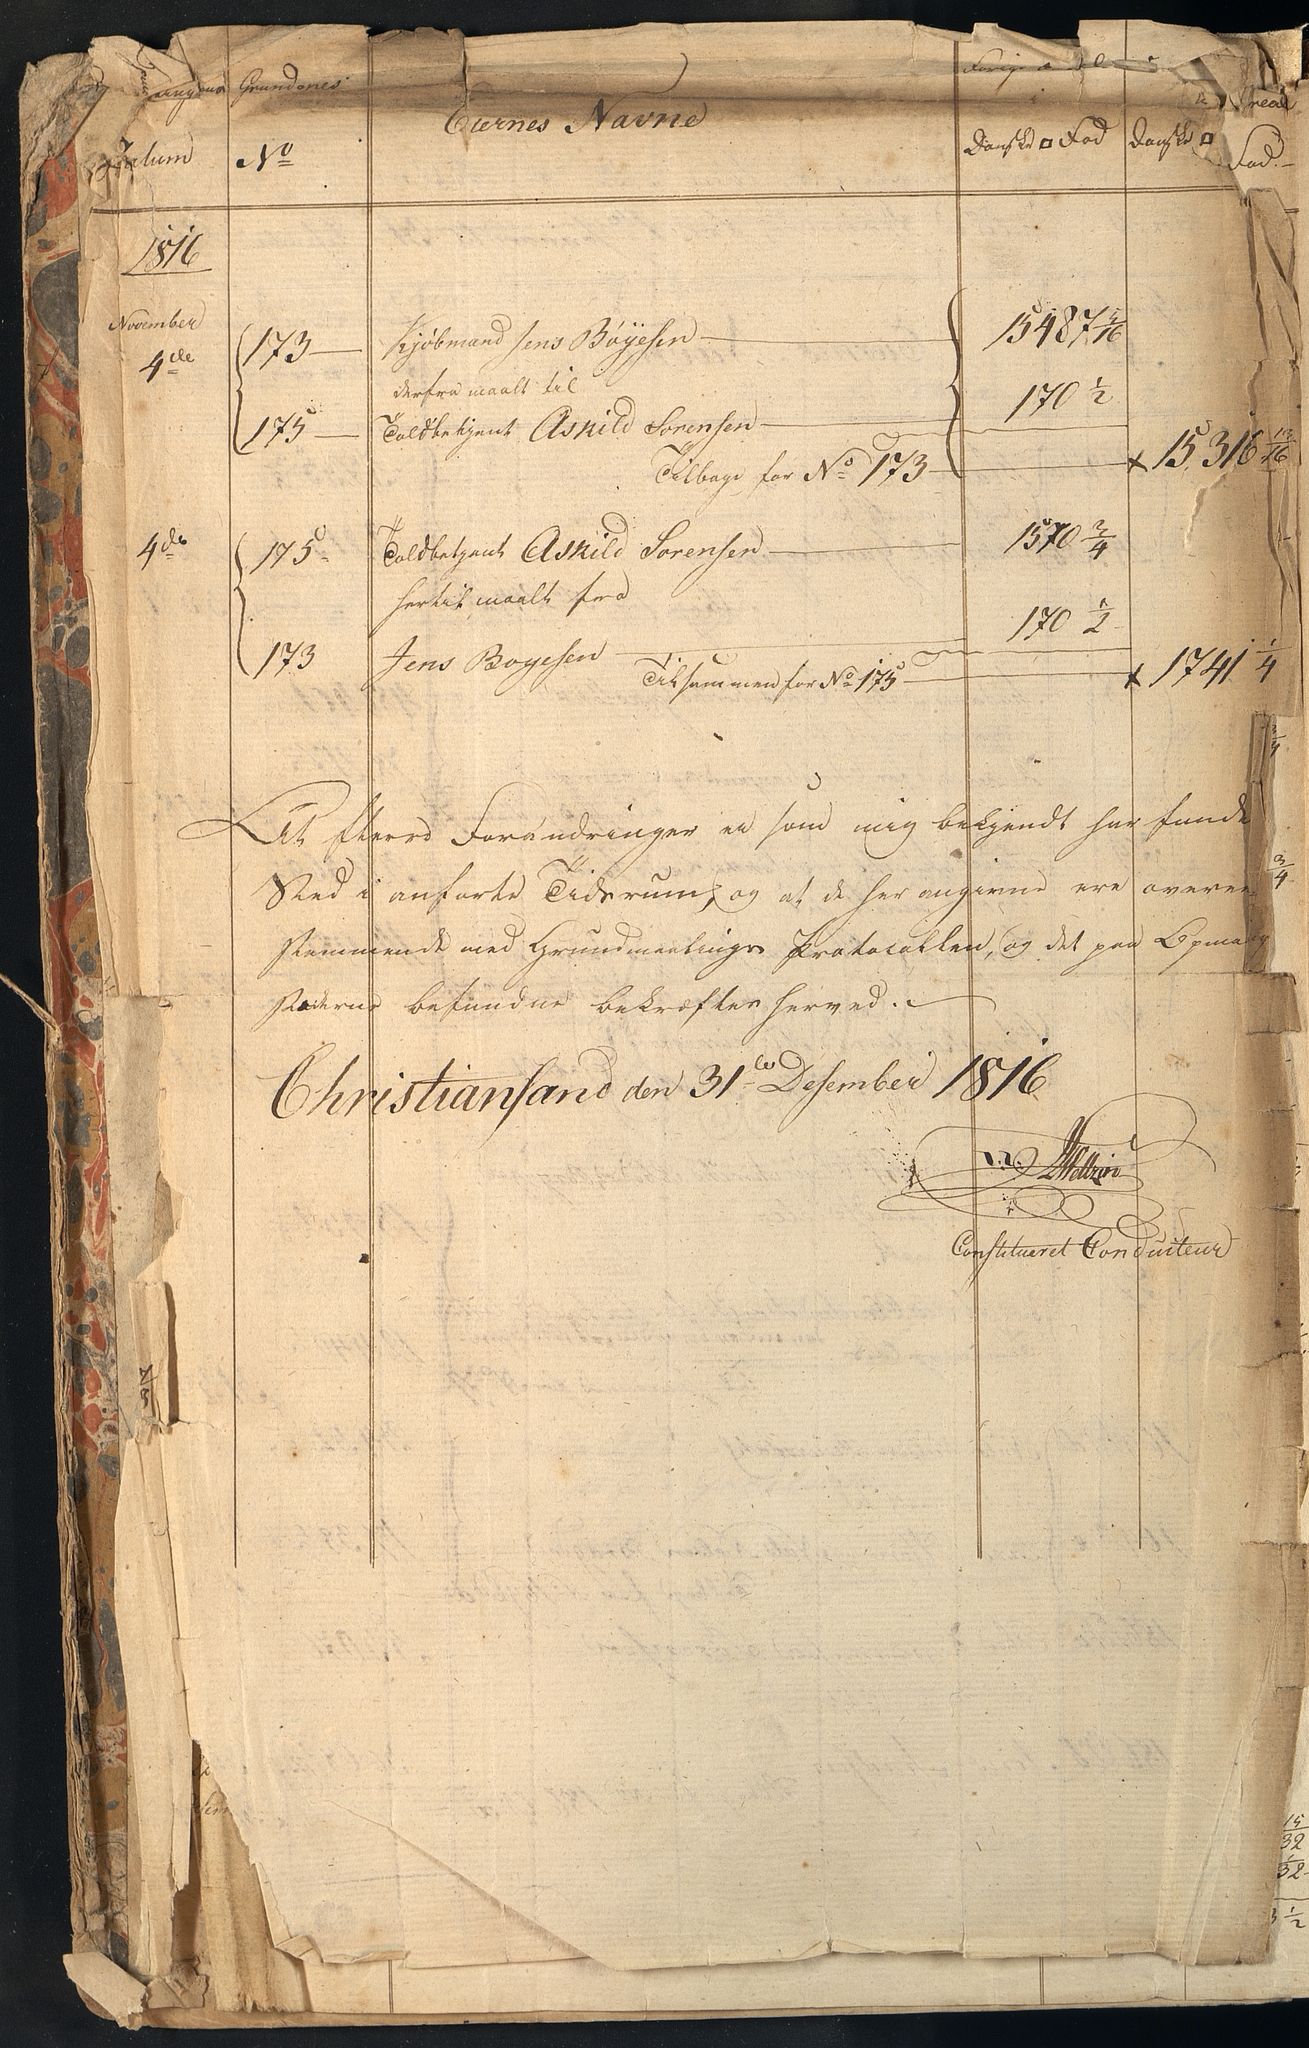 Grundenes
Datum No Eiernes Navne Danske □ Fod Danske □ Fod.
1816
November
4de 173 Kjøbmand Jens Böÿesen 15487 5/16
derfra maalt til 170 1/2
175 Toldbetjent Askild Sörensen
Tilbage for No 173 x 15,316 13/16
4de 175 Toldbetjent Askild Sörensen 1570 3/4
hertil maalt fra
170 1/2
173 Jens Boyesen
Tilsammen for No 175 x 1741 1/4
At fleere Forandringer ei som mig bekjendt har funde
Sted i anførte Tidsrum, og at de her angivne ere overee
stemmende med Grundmaalings Protocollen, og det paa Opmaa
stæderne befundne bekræftes herved.
Christiansand den 31te Desember 1816
Constitueret Conduiteur
3/4
3/4
15/32
1/32
3 1/2